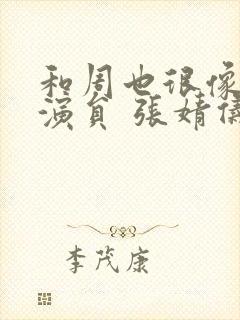 和周也很像
演員 張婧儀
李茂康